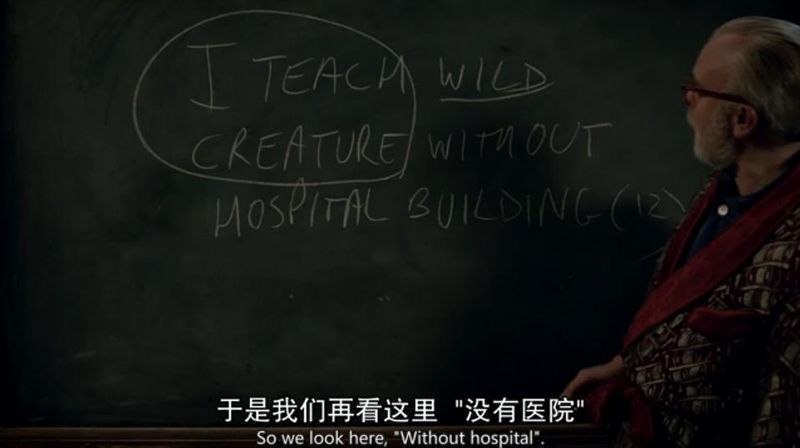 I TEACH WILD
CREATURE WITHOUT
HOSPITAL BUILDING (12)
于是我们再看这里 "没有医院"
So we look here, "Without hospital".